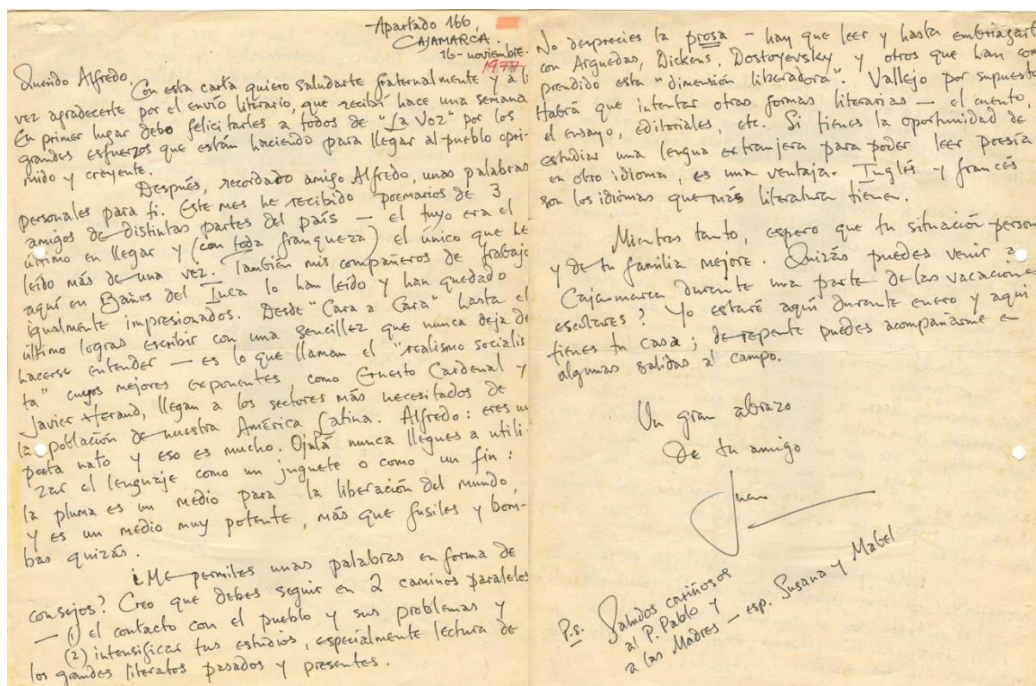 Apartado 166,
CAJAMARCA.
16-noviembre.
1977
Querido Alfredo,
Con esta carta quiero saludarte fraternalmente y a la
vez agradecerte por el envío literario, que recibí hace una semana.
En primer lugar debo felicitarles a todos de "La Voz" por los
grandes esfuerzos que están haciendo para llegar al pueblo opri-
mido y creyente.
Después, recordado amigo Alfredo, unas palabras
personales para ti. Este mes he recibido poemarios de 3
amigos de distintas partes del país — el tuyo era el
último en llegar y (con toda franqueza) el único que he
leído más de una vez. También mis compañeros de trabajo
aquí en Baños del Inca lo han leído y han quedado
igualmente impresionados. Desde "Cara a Cara" hasta el
último logras escribir con una sencillez que nunca deja de
hacerse entender — es lo que llaman el "realismo socialis-
ta" cuyos mejores exponentes, como Ernesto Cardenal y
Javier Heraud, llegan a los sectores más necesitados de
la población de nuestra América Latina. Alfredo: eres un
poeta nato y eso es mucho. Ojalá nunca llegues a utili-
zar el lenguaje como un juguete o como un fin:
la pluma es un medio para la liberación del mundo,
y es un medio muy potente, más que fusiles y bom-
bas quizás.
¿Me permites unas palabras en forma de
consejos? Creo que debes seguir en 2 caminos paralelos
— (1) el contacto con el pueblo y sus problemas y
(2) intensificar tus estudios, especialmente lectura de
los grandes literatos pasados y presentes.
No desprecies la prosa — hay que leer y hasta embriagarte
con Arguedas, Dickens, Dostoyevsky y otros que han com-
prendido esta "dimensión liberadora". Vallejo por supuesto
Habrá que intentar otras formas literarias — el cuento,
el ensayo, editoriales, etc. Si tienes la oportunidad de
estudiar una lengua extranjera para poder leer poesía
en otro idioma, es una ventaja. Inglés y francés
son los idiomas que más literatura tienen.
Mientras tanto, espero que tu situación person
y de tu familia mejore. Quizás puedes venir a
Cajamarca durante una parte de las vacacione
escolares? Yo estaré aquí durante enero y aquí
tienes tu casa; de repente puedes acompañarme e
algunas salidas al campo.
Un gran abrazo
de tu amigo
Juan
P.s. Saludos cariñosos
al P. Pablo y
a las Madres — esp. Susana y Mabel